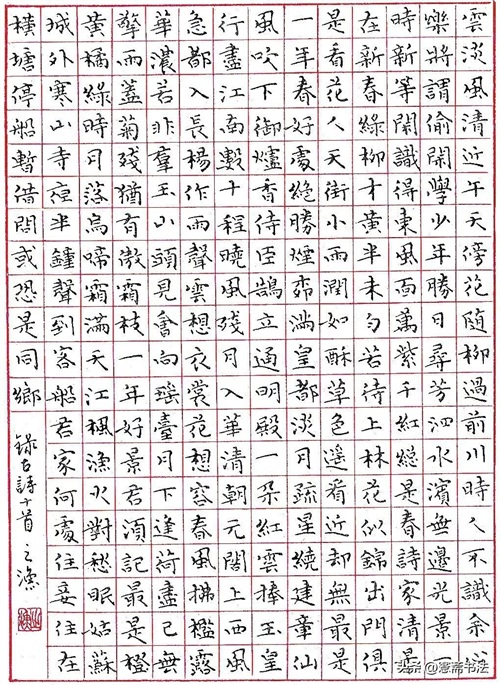 雲淡風清近午天傍花隨柳過前川時人不識余心
樂將謂偷閑學少年勝日尋芳泗水濱無邊光景一
時新等閑識得東風面萬紫千紅總是春詩家清景
在新春綠柳才黃半未勻若待上林花似錦出門俱
是看花人天街小雨潤如酥草色遙看近却無最是
一年春好處絕勝煙柳滿皇都淡月疏星繞建章仙
風吹下御爐香侍臣鵠立通明殿一朵紅雲捧玉皇
行盡江南數十程曉風殘月入華清朝元閣上西風
急都入長楊作雨聲雲想衣裳花想容春風拂檻露
華濃若非羣玉山頭見會向瑤臺月下逢荷盡已無
擎雨蓋菊殘猶有傲霜枝一年好景君須記最是橙
黃橘綠時月落烏啼霜滿天江楓漁火對愁眠姑蘇
城外寒山寺夜半鍾聲到客船君家何處住妾住在
橫塘停船暫借問或恐是同鄉
錄古詩十首 之漁
头条@憲斋书法